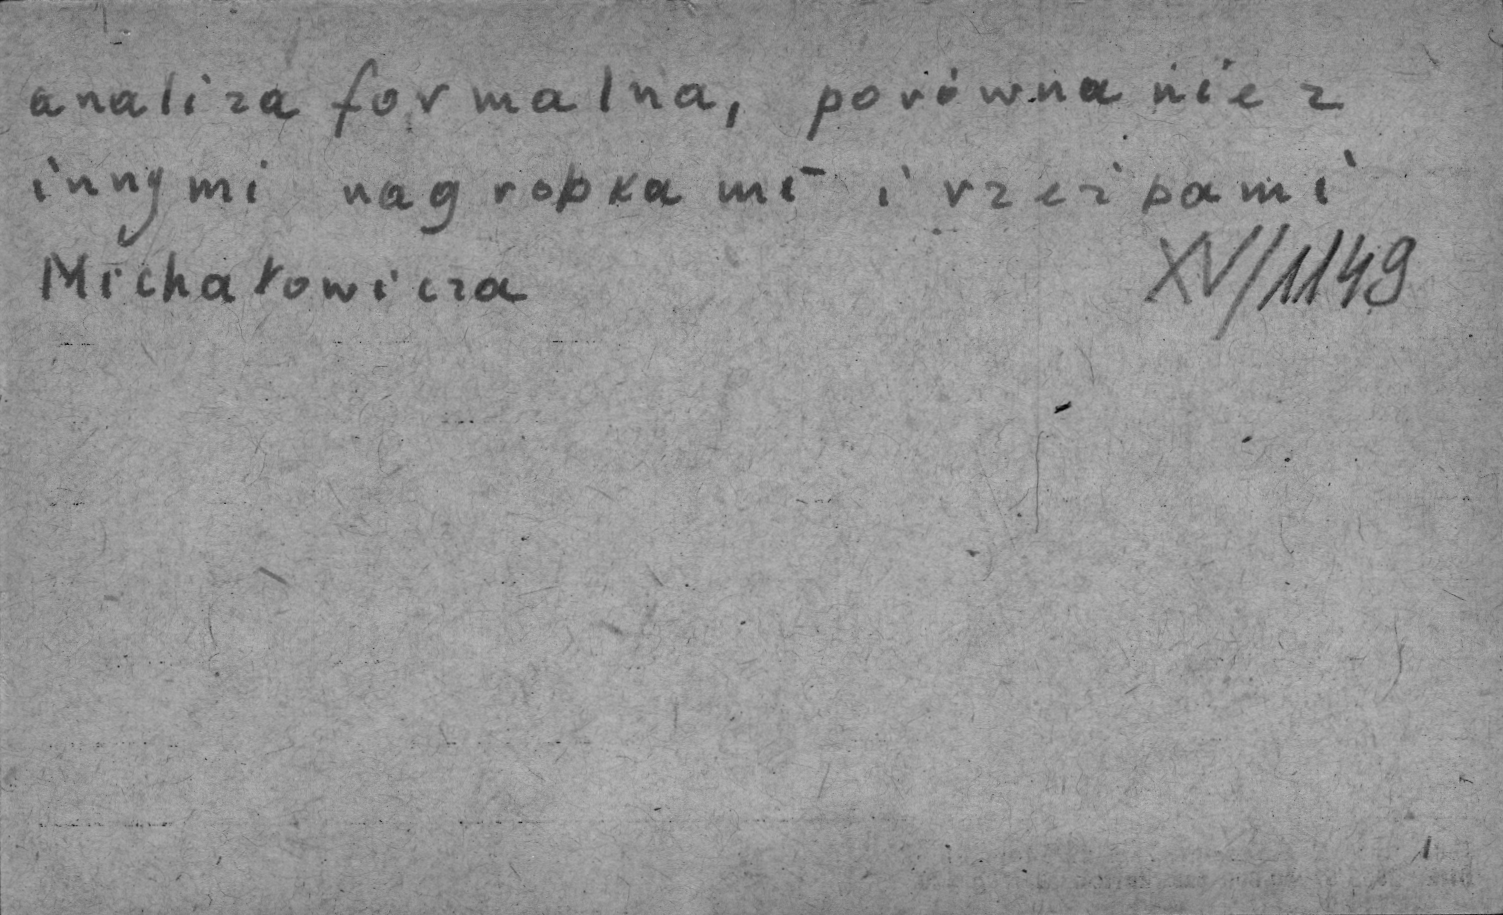 analiza formalna, porównanie z
innymi nagrobkami i rzeźbami
Michałowicza
XV/1149